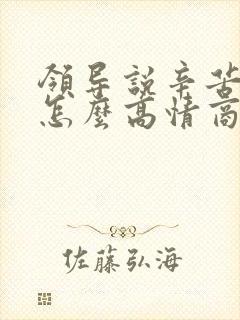 領导說辛苦
怎麼高情商
佐藤弘海